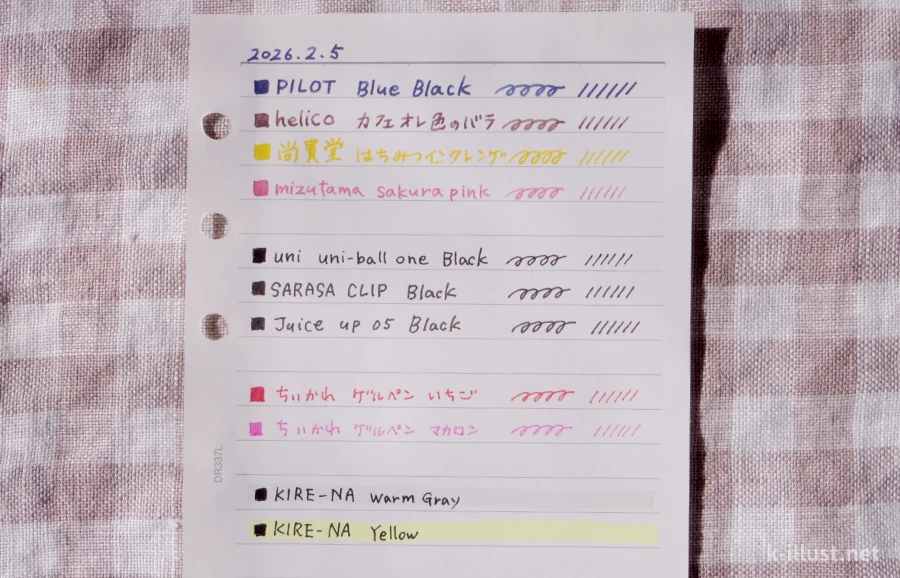 2026.2.5
PILOT Blue Black
helico カフェオレ色のバラ
尚貫堂 はちみつインクレンゲ
mizutama sakura pink
uni uni-ball one Black
SARASA CLIP Black
Juice up 05 Black
ちいかわ ゲルペン いちご
ちいかわ ゲルペン マカロン
KIRE-NA Warm Gray
KIRE-NA Yellow
DR337L
k-illust.net